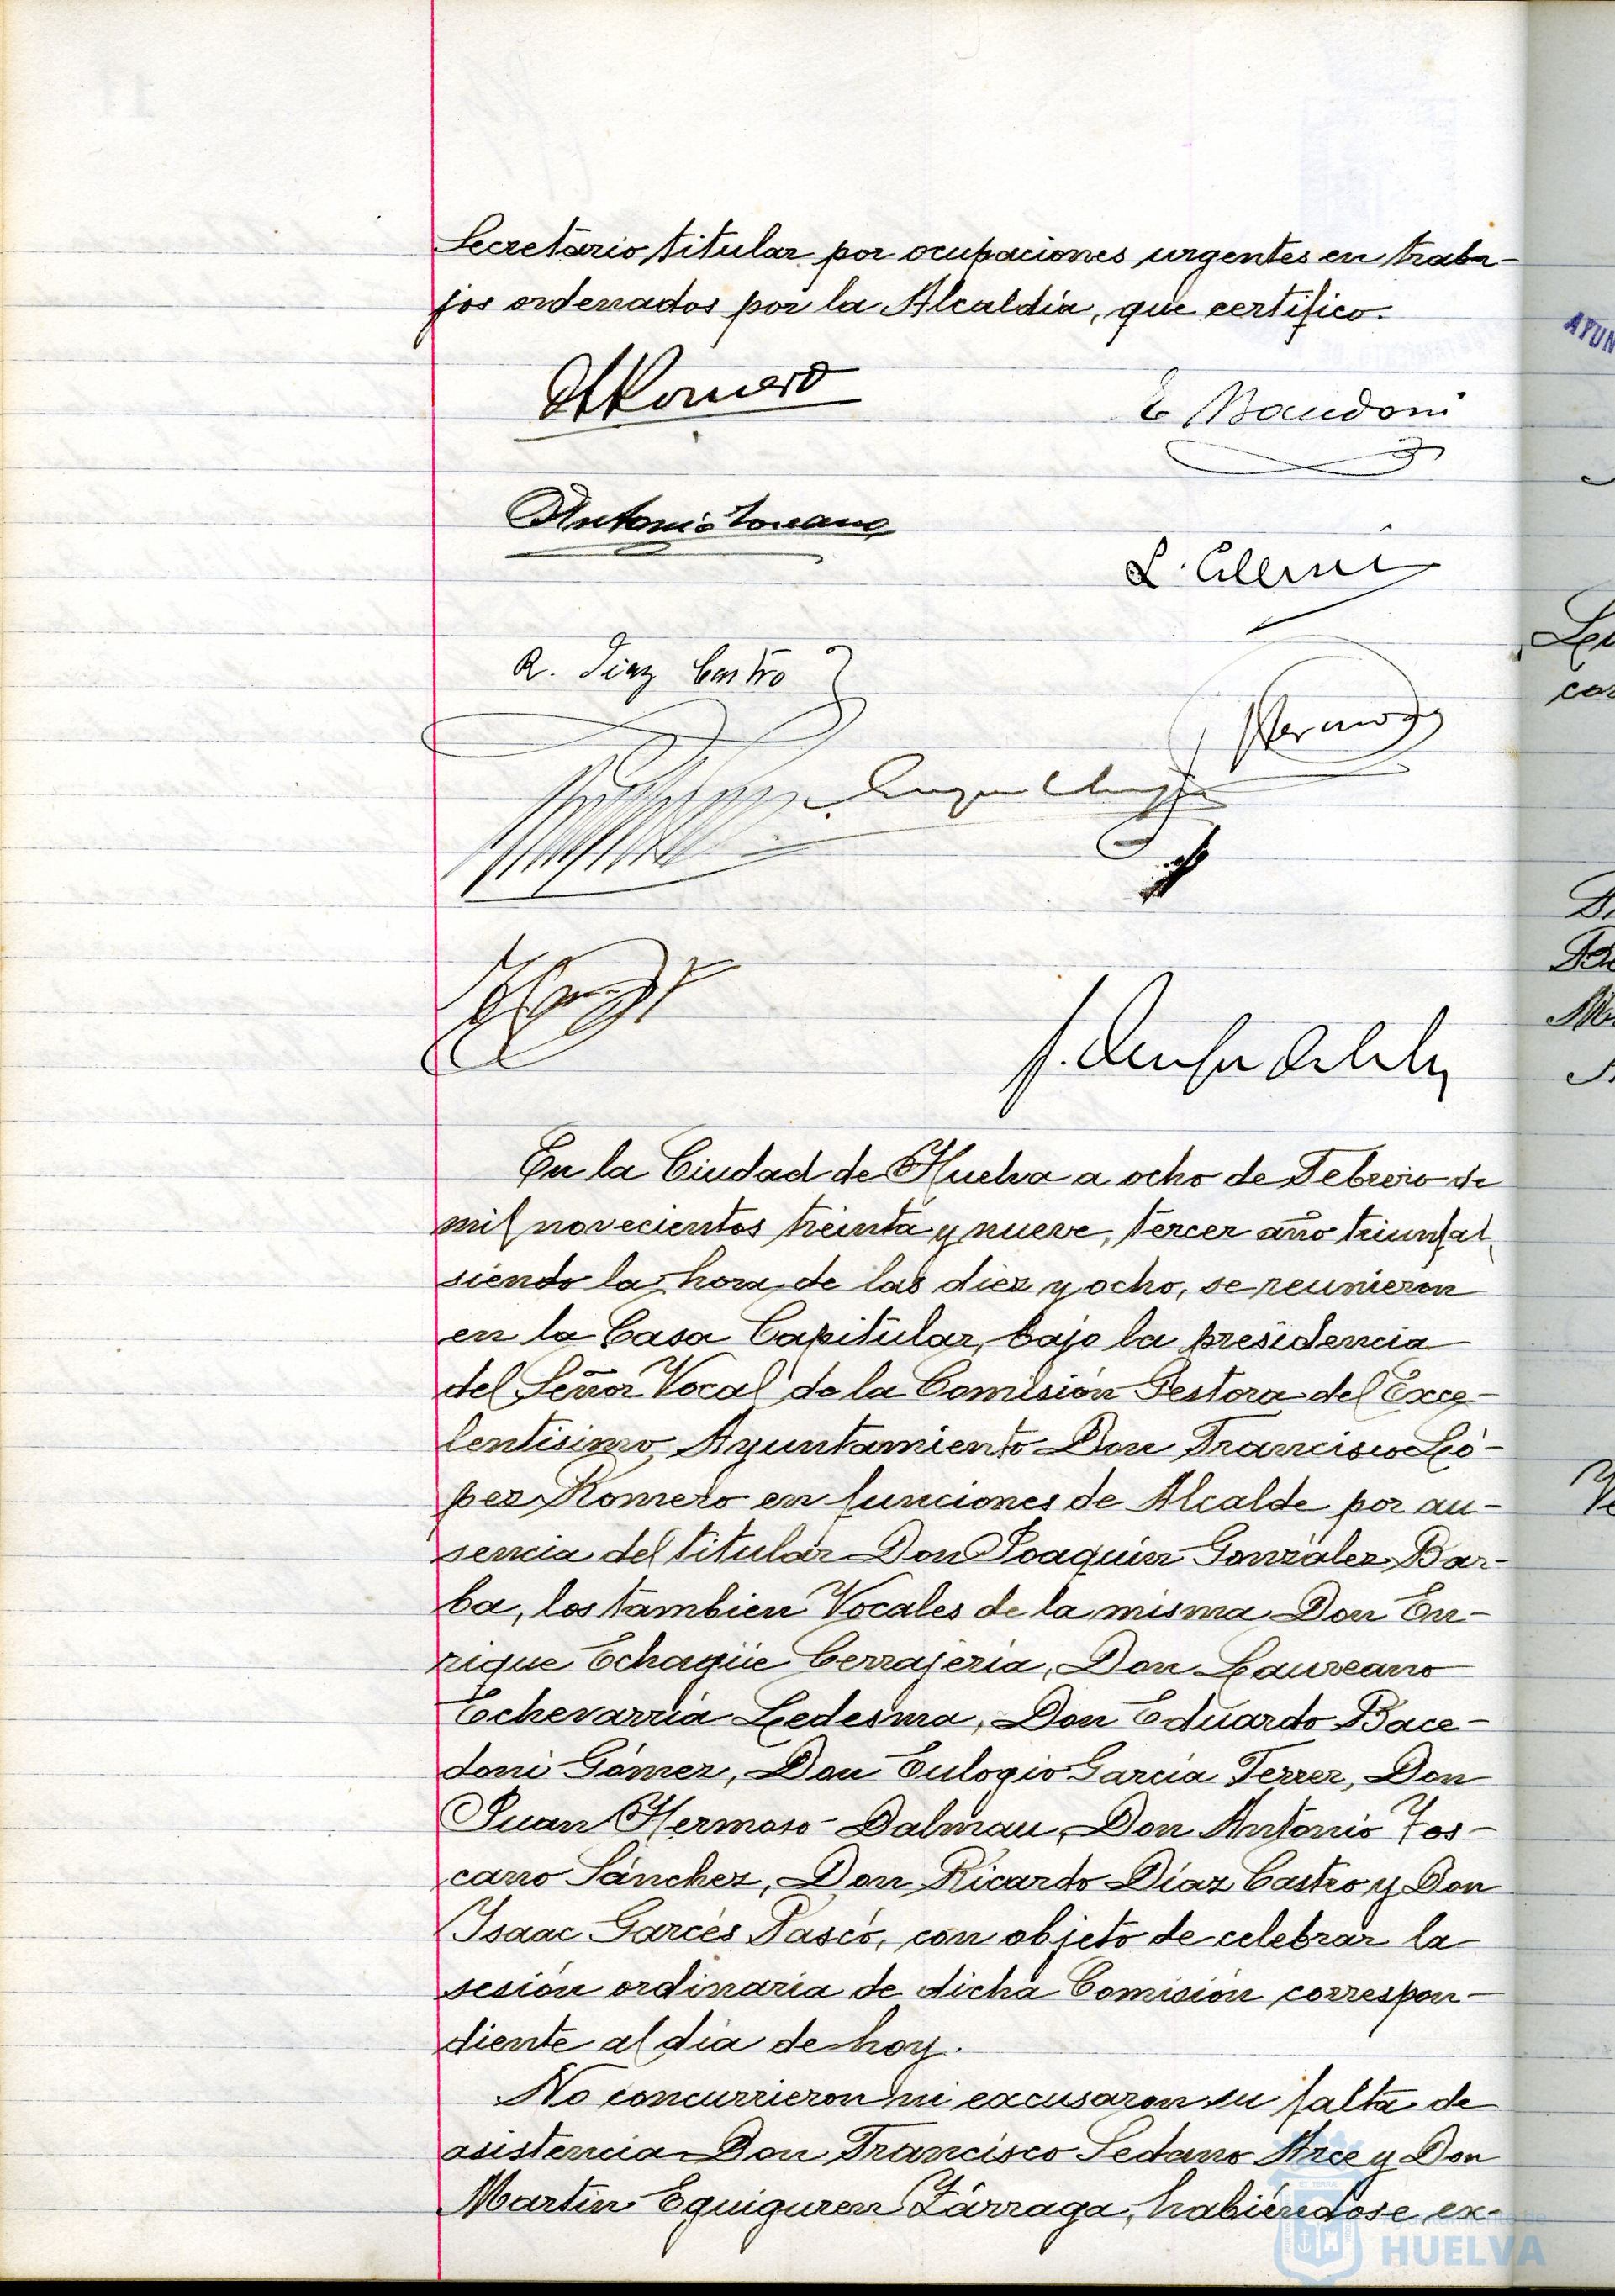 Secretario titular por ocupaciones urgentes en traba-
jos ordenados por la Alcaldía, que certifico.
Romero
E Bacedoni
Antonio Toscano
R. Diaz Castro
En la Ciudad de Huelva a ocho de Febrero de
mil novecientos treinta y nueve, tercer año triunfal,
siendo la hora de las diez y ocho, se reunieron
en la Casa Capitular, bajo la presidencia
del Señor Vocal de la Comisión Gestora del Exce-
lentísimo Ayuntamiento Don Francisco Ló-
pez Romero en funciones de Alcalde por au-
sencia del titular Don Joaquín González Bar-
ba, los tambien Vocales de la misma Don En-
rique Echagüe Cerrajería, Don Laureano
Echevarría Ledesma, Don Eduardo Bace-
doni Gómez, Don Eulogio García Ferrer, Don
Juan Hermoso Dalmau, Don Antonio Tos-
cano Sánchez, Don Ricardo Díaz Castro y Don
Isaac Garcés Pascó, con objeto de celebrar la
sesión ordinaria de dicha Comisión correspon-
diente al día de hoy.
No concurrieron ni excusaron su falta de
asistencia Don Francisco Sedano Arce y Don
Martín Eguiguren Zárraga, habiéndose ex-
HUELVA
AYUN